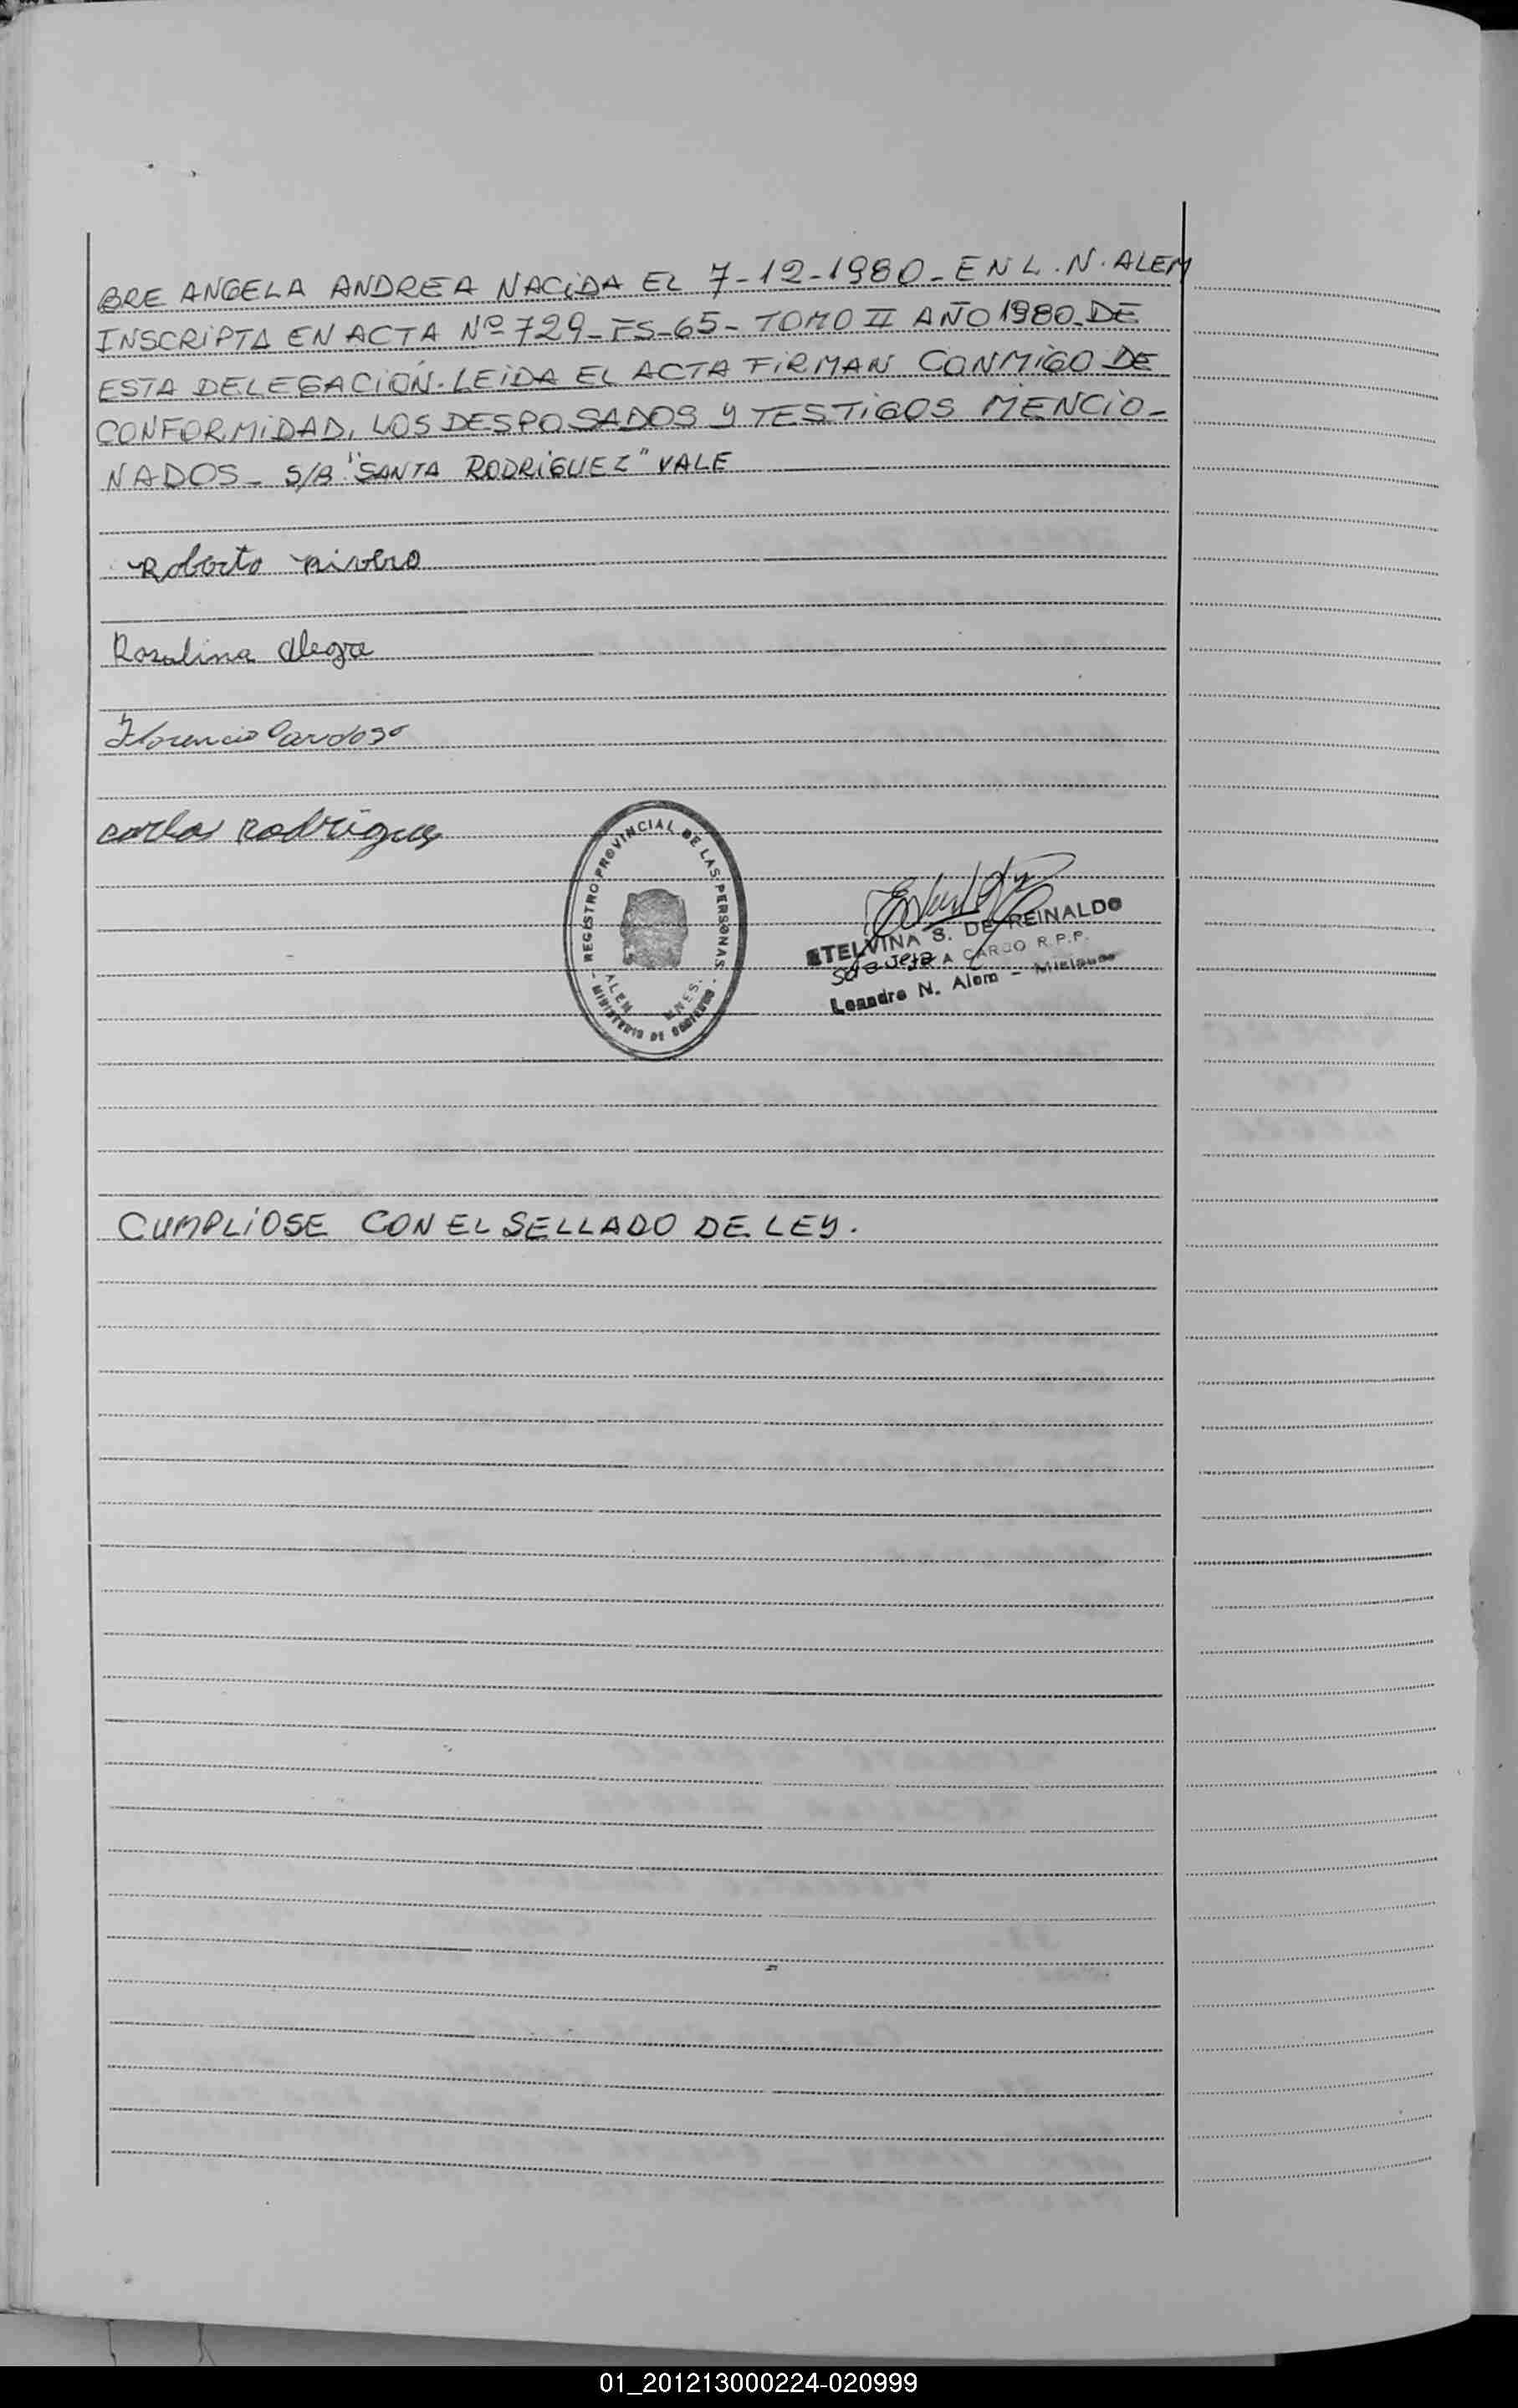 BRE ANGELA ANDREA NACIDA EL 7-12-1980_ EN L. N. ALEM
INSCRIPTA EN ACTA Nº 729_FS-65_ TOMO II AÑO 1980_DE
ESTA DELEGACIÓN. LEIDA EL ACTA FIRMAN CONMIGO DE
CONFORMIDAD, LOS DESPOSADOS Y TESTIGOS MENCIO_
NADOS_ S/B "SANTA RODRIGUEZ" VALE
Roberto rivero
Rosalina Alegre
Florencio Cardozo
carlos Rodrigues
REGISTRO PROVINCIAL DE LAS PERSONAS
ALEM MNES.
MINISTERIO DE GOBIERNO
ETELVINA S. DE REINALDO
A CARGO R.P.P.
Leandro N. Alem - Misiones
CUMPLIOSE CON EL SELLADO DE LEY.
01_201213000224-020999